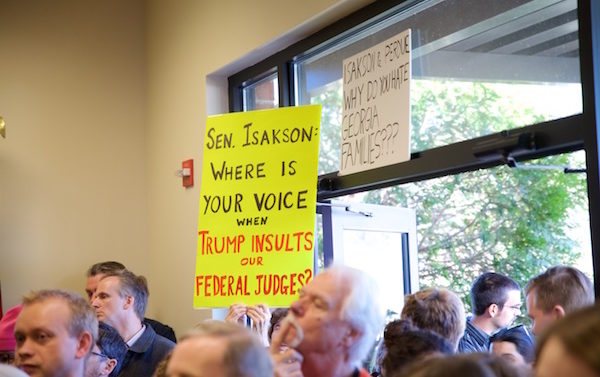 SEN. ISAKSON:
WHERE IS
YOUR VOICE
WHEN
TRUMP INSULTS
OUR
FEDERAL JUDGES?
ISAKSON & PERDUE
WHY DO YOU HATE
GEORGIA
FAMILIES???